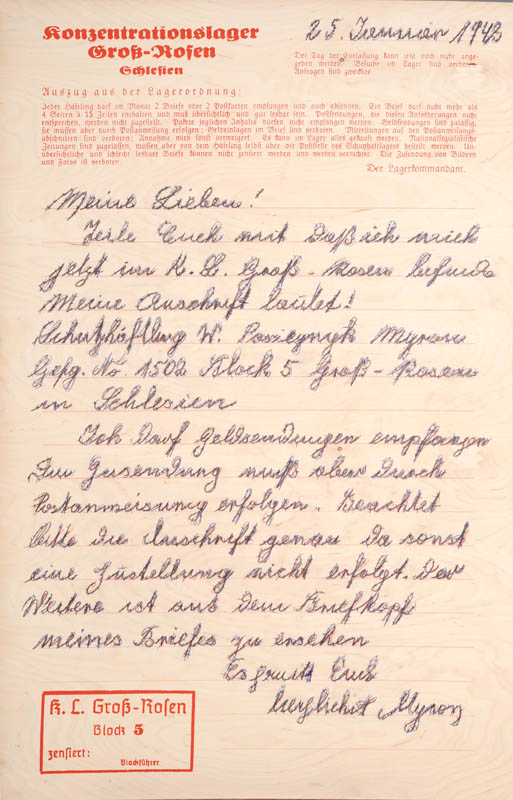 Konzentrationslager
Groß-Rosen
Schlesien
25. Januar 1943
Der Tag der Entlassung kann jetzt noch nicht ange-
geben werden. Besuche im Lager sind verboten.
Anfragen sind zwecklos.
Auszug aus der Lagerordnung:
Jeder Häftling darf im Monat 2 Briefe oder 2 Postkarten empfangen und auch absenden. Ein Brief darf nicht mehr als
4 Seiten à 15 Zeilen enthalten und muß übersichtlich und gut lesbar sein. Postsendungen, die diesen Anforderungen nicht
entsprechen, werden nicht zugestellt. Pakete jeglichen Inhalts dürfen nicht empfangen werden. Geldsendungen sind zulässig,
sie müssen aber durch Postanweisung erfolgen; Geldeinlagen im Brief sind verboten. Mitteilungen auf den Postanweisungs-
abschnitten sind verboten; Annahme wird sonst verweigert. Es kann im Lager alles gekauft werden. Nationalsozialistische
Zeitungen sind zugelassen, müssen aber von dem Häftling selbst über die Poststelle des Schutzhaftlagers bestellt werden. Un-
übersichtliche und schlecht lesbare Briefe können nicht zensiert werden und werden vernichtet. Die Zusendung von Bildern
und Fotos ist verboten.
Der Lagerkommandant.
Meine Lieben!
Teile Euch mit daß ich mich
jetzt im K. L. Groß-Rosen befinde
Meine Anschrift lautet!
Schutzhäftling W. Myron
Gefg. No. 1502 Block 5 Groß-Rosen
in Schlesien
Ich darf Geldsendungen empfangen
Zusendung muß aber durch
Postanweisung erfolgen. Beachtet
bitte die Anschrift genau da sonst
eine Zustellung nicht erfolgt. Das
Weitere ist aus dem Briefkopf
meines Briefes zu ersehen
Es grüßt Euch
herzlichst Myron
K. L. Groß-Rosen
Block 5
zensiert:
Blockführer